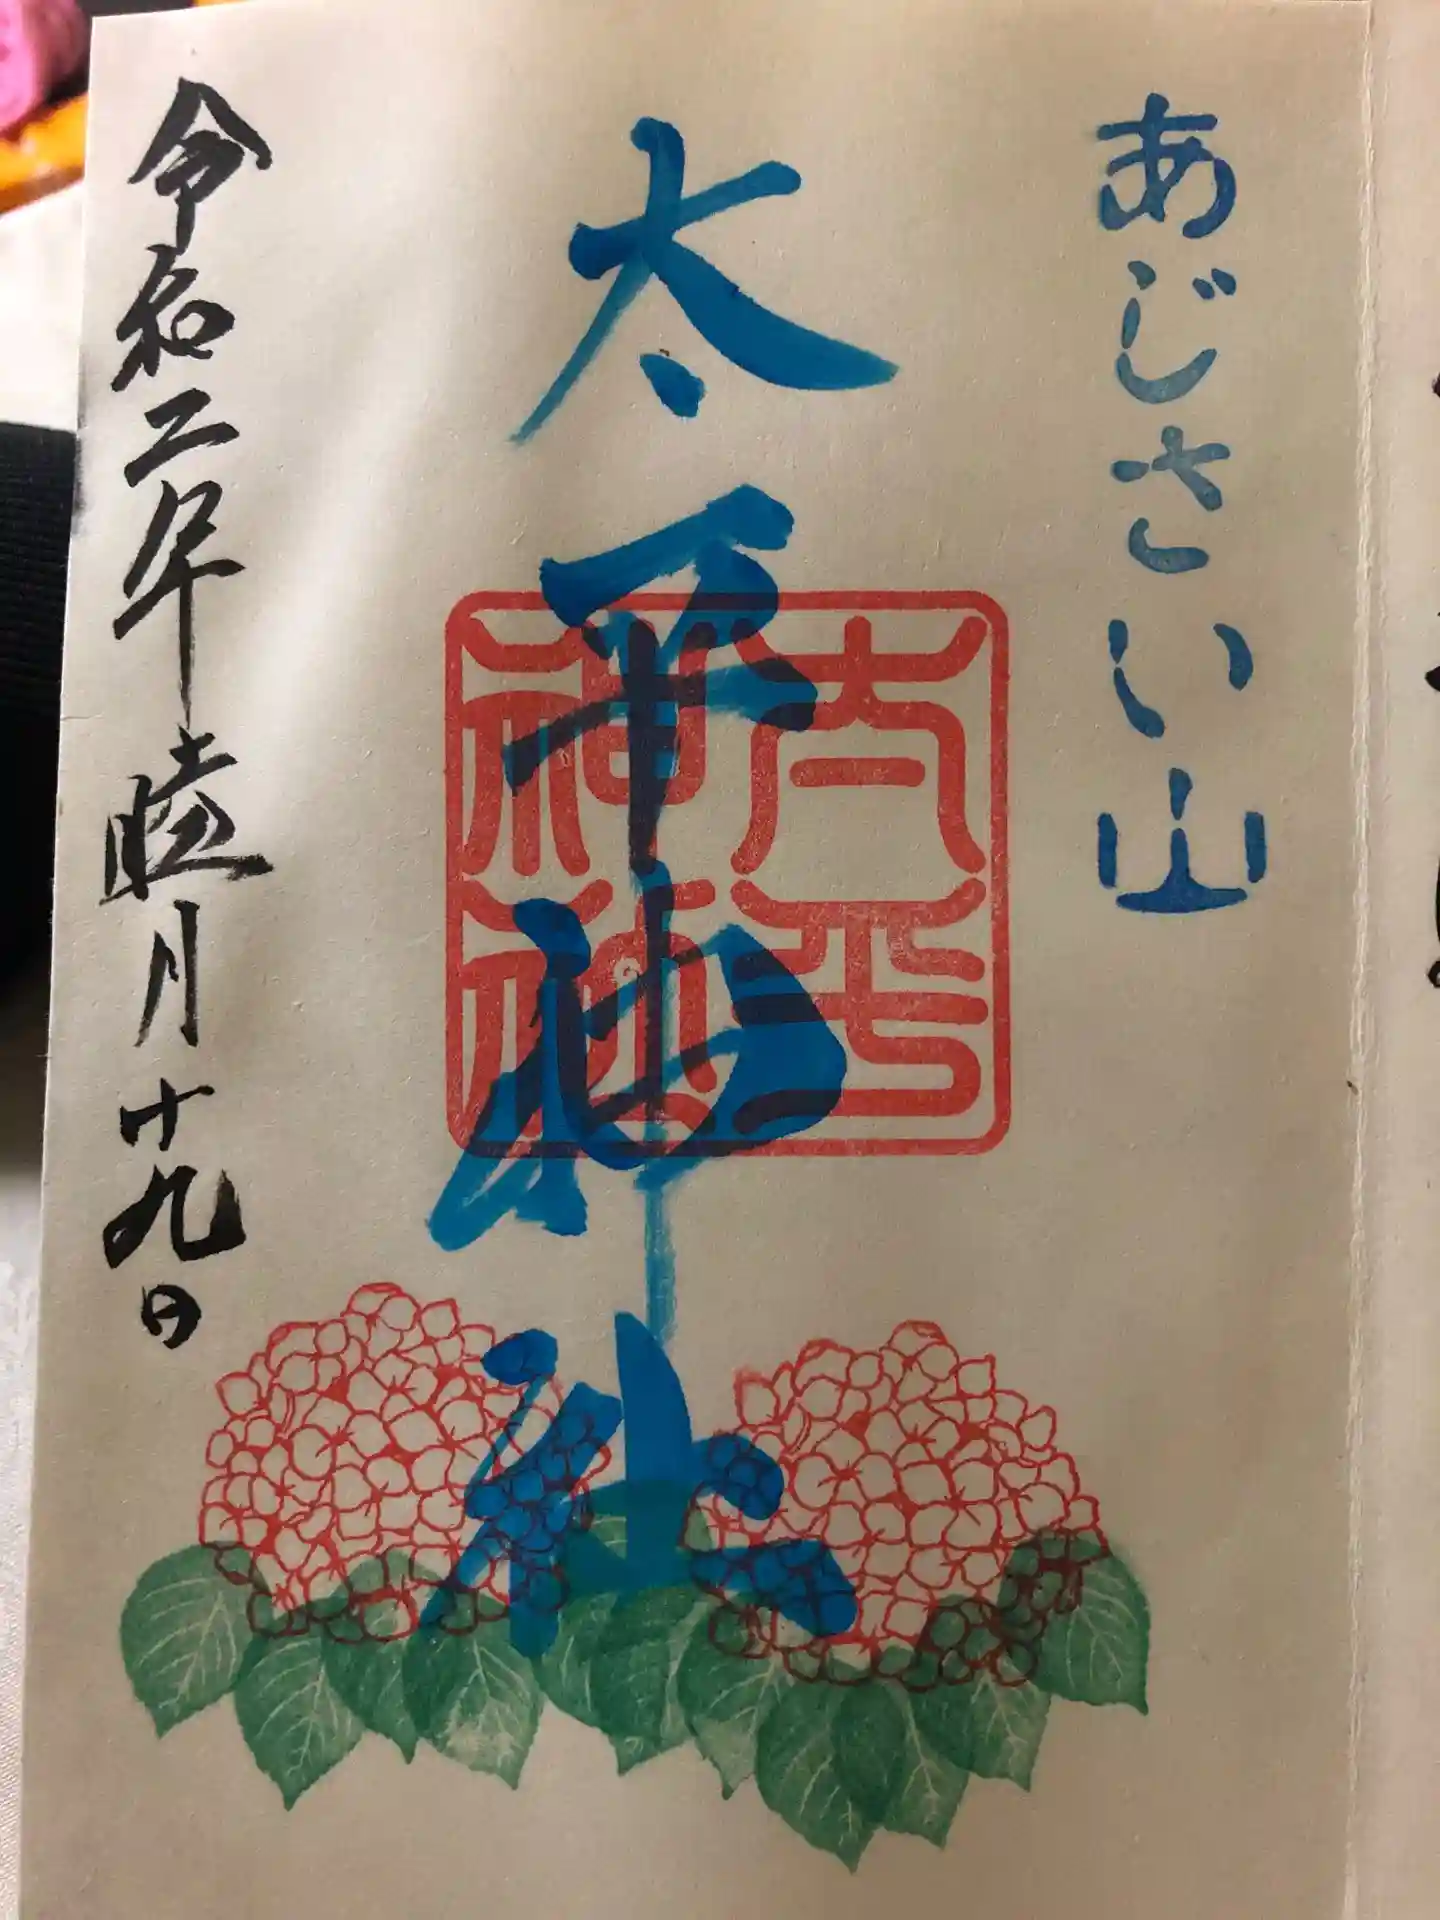 あじさい山
太平神社
太平神社
令和二年睦月十九日